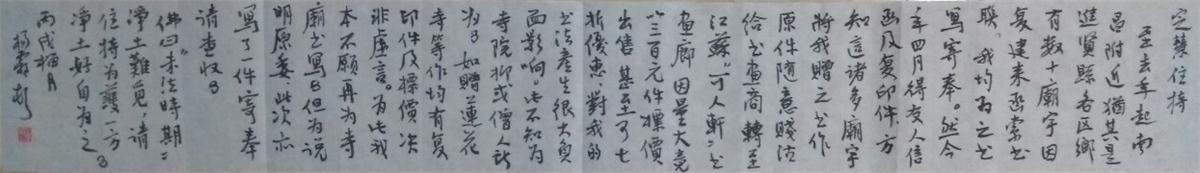 定慧住持
至去年起南
昌附近犹其是
进贤县各区乡
有数十庙宇因
复建来函索书
联。我均为之书
写寄奉。然今
年四月得友人信
函及复印件方
知這诸多廟宇
将我赠之书作
原件随意贱沽
给书画商轉至
江蘇"可人軒"书
画廊因量大竟
以三百元件标價
出售甚至可七
折優惠對我的
书法產生很大負
面影响。此不知为
寺院抑或僧人所
为。如赠蓮花
寺等作均有复
印件及標價决
非虚言。为此我
本不願再为寺
廟书寫。但为说
明原委此次亦
寫了一件寄奉
请查收。
佛曰末法時期
淨土難觅,请
住持为護一方
淨土好自为之。
丙戌梅月